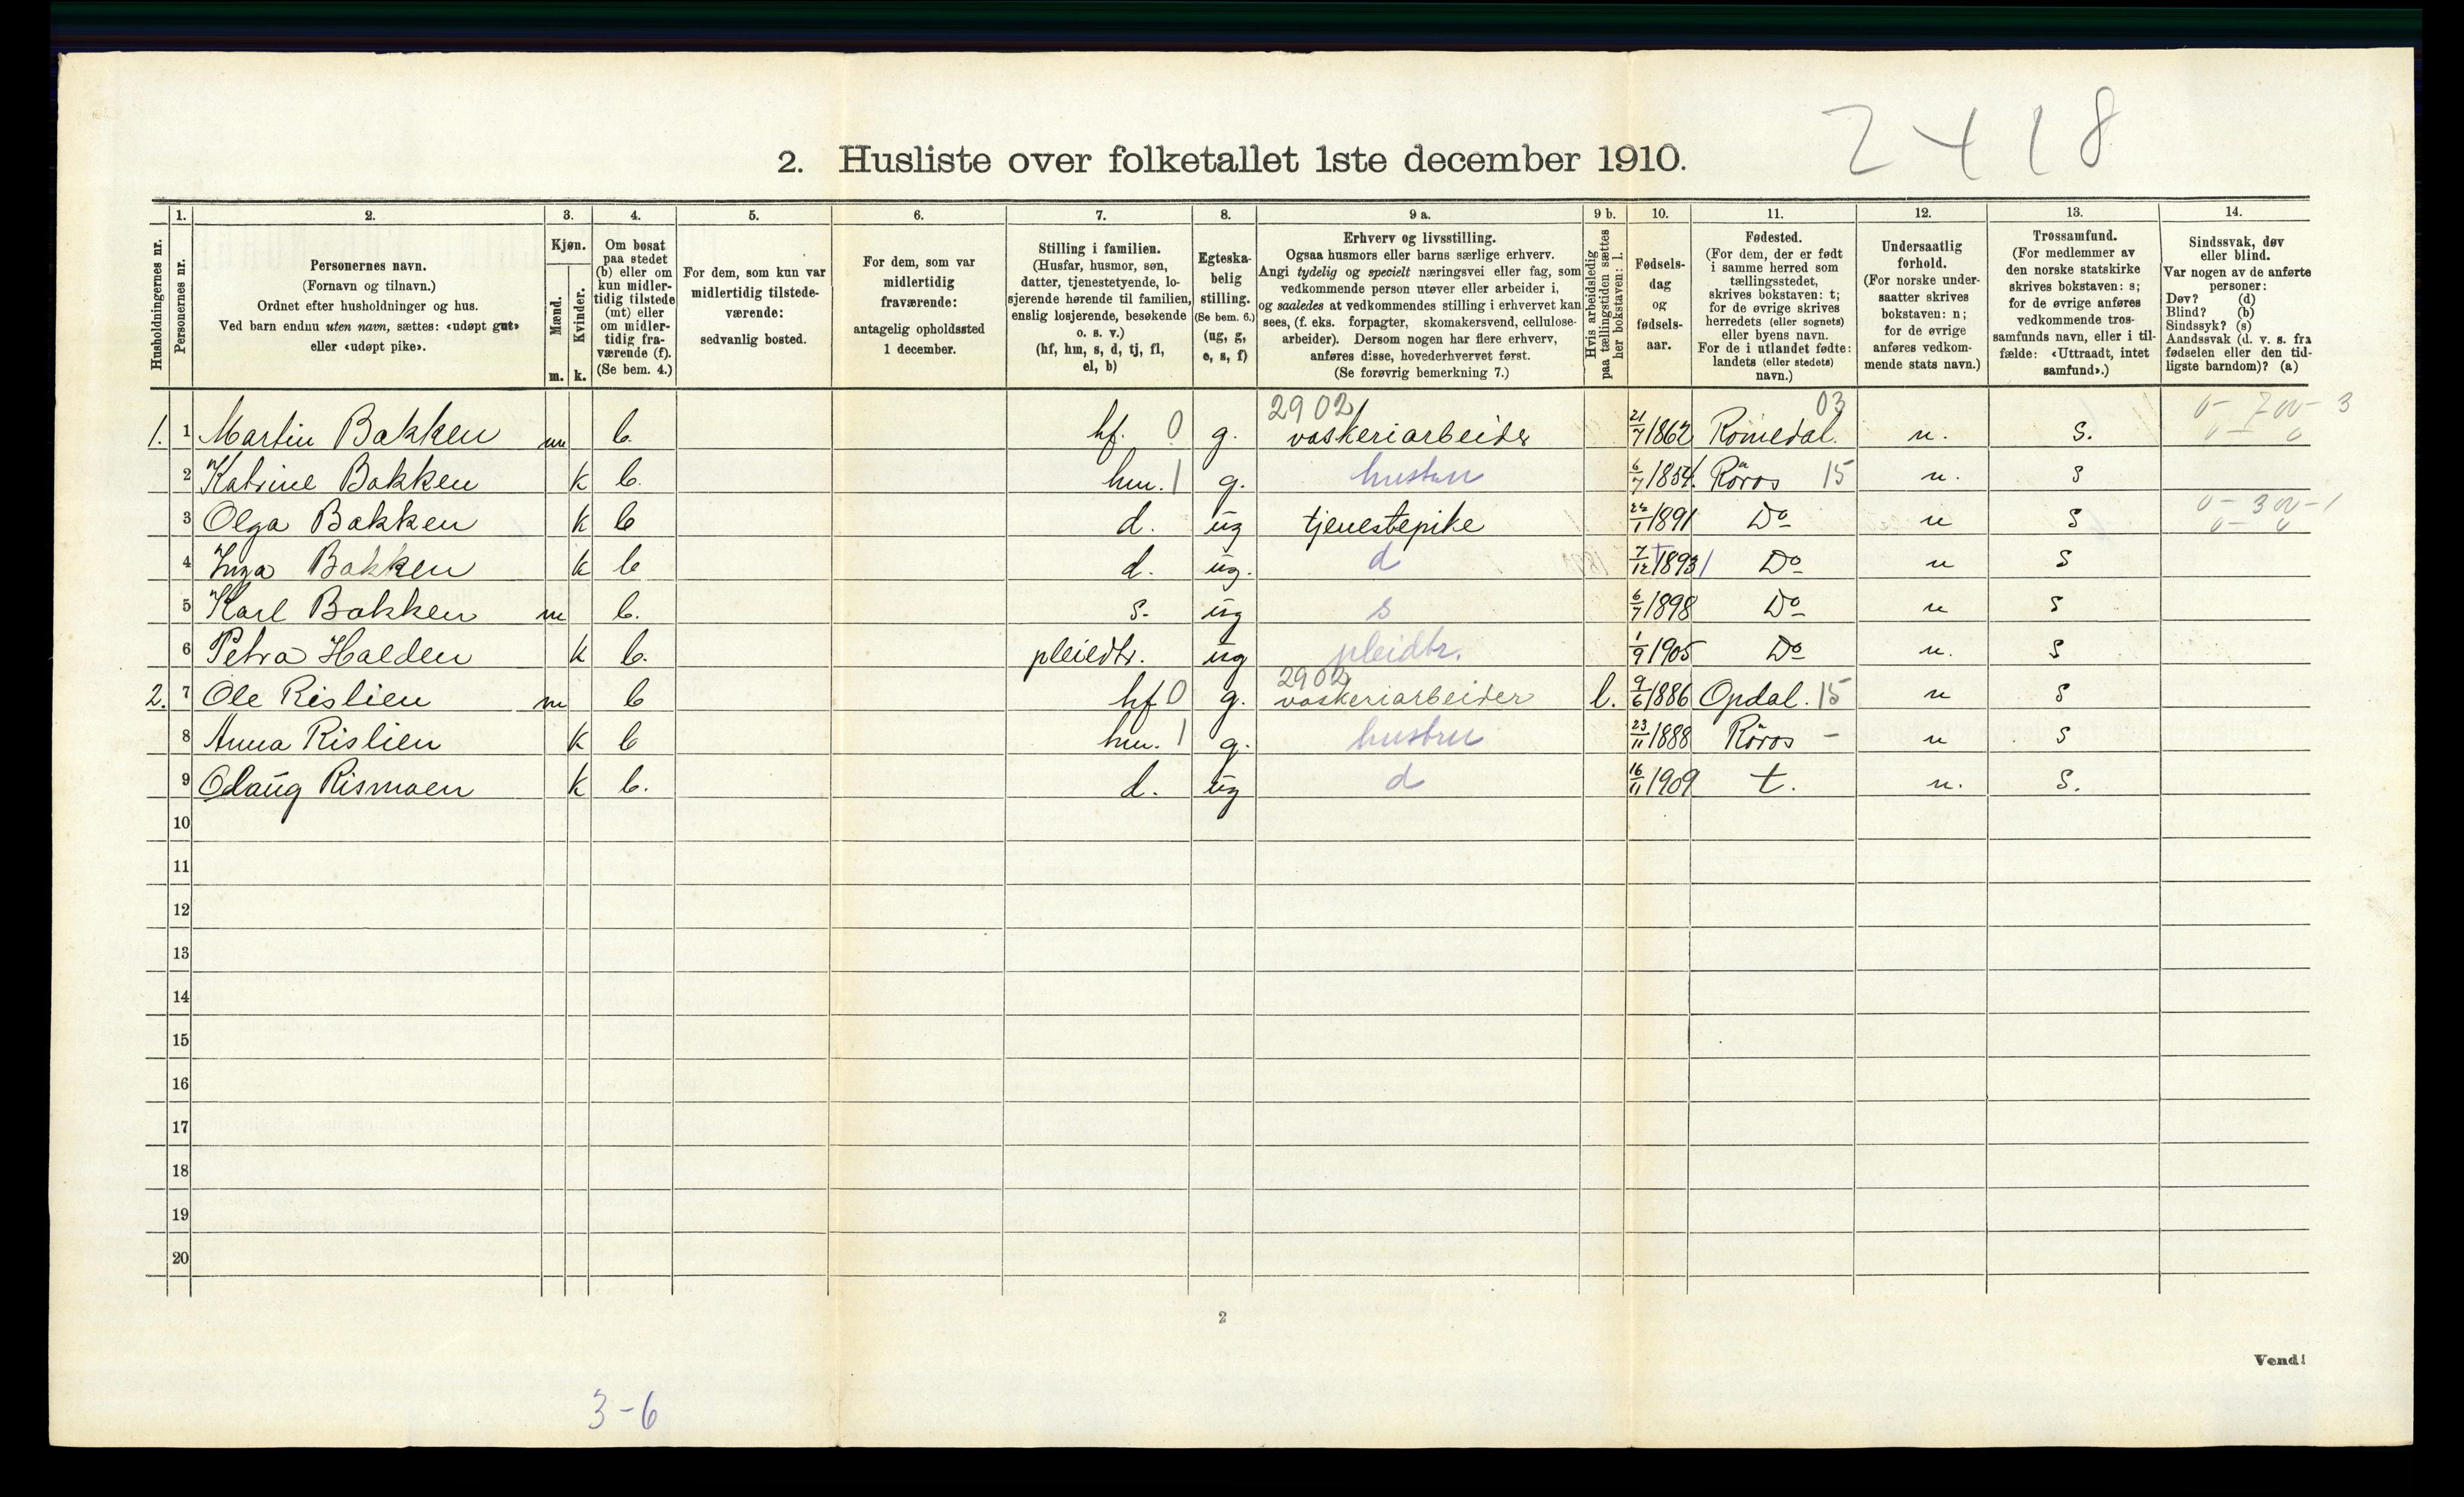 2418
2. Husliste over folketallet 1ste december 1910.
1. 2. 3. 4. 5. 6. 7. 8. 9 a. 9 b. 10. 11. 12. 13. 14.
Husholdningernes nr.
Personernes nr.
Personernes navn.
(Fornavn og tilnavn.)
Ordnet efter husholdninger og hus.
Ved barn endnu uten navn, sættes: «udøpt gut»
eller «udøpt pike».
Kjøn.
Mænd.
Kvinder.
m. k.
Om bosat
paa stedet
(b) eller om
kun midler-
tidig tilstede
(mt) eller
om midler-
tidig fra-
værende (f).
(Se bem. 4.)
For dem, som kun var
midlertidig tilstede-
værende:
sedvanlig bosted.
For dem, som var
midlertidig
fraværende:
antagelig opholdssted
1 december.
Stilling i familien.
(Husfar, husmor, søn,
datter, tjenestetyende, lo-
sjerende hørende til familien,
enslig losjerende, besøkende
o. s. v.)
(hf, hm, s, d, tj, fl,
el, b)
Egteska-
belig
stilling.
(Se bem. 6.)
(ug, g,
e, s, f)
Erhverv og livsstilling.
Ogsaa husmors eller barns særlige erhverv.
Angi tydelig og specielt næringsvei eller fag, som
vedkommende person utøver eller arbeider i,
og saaledes at vedkommendes stilling i erhvervet kan
sees, (f. eks. forpagter, skomakersvend, cellulose-
arbeider). Dersom nogen har flere erhverv,
anføres disse, hovederhvervet først.
(Se forøvrig bemerkning 7.)
Hvis arbeidsledig
paa tællingstiden sættes
her bokstaven: l.
Fødsels-
dag
og
fødsels-
aar.
Fødested.
(For dem, der er født
i samme herred som
tællingsstedet,
skrives bokstaven: t;
for de øvrige skrives
herredets (eller sognets)
eller byens navn.
For de i utlandet fødte:
landets (eller stedets)
navn.)
Undersaatlig
forhold.
(For norske under-
saatter skrives
bokstaven: n;
for de øvrige
anføres vedkom-
mende stats navn.)
Trossamfund.
(For medlemmer av
den norske statskirke
skrives bokstaven: s;
for de øvrige anføres
vedkommende tros-
samfunds navn, eller i til-
fælde: «Uttraadt, intet
samfund».)
Sindssvak, døv
eller blind.
Var nogen av de anførte
personer:
Døv? (d)
Blind? (b)
Sindssyk? (s)
Aandssvak (d. v. s. fra
fødselen eller den tid-
ligste barndom)? (a)
2902 03
1. 1 Martin Bakken m b. hf. 0 g. vaskeriarbeider 21/7 1862 Romedal. n. S.
2 Katrine Bakken k b. hm. 1 g. hustru 6/7 1854. Röros 15 n. s
3 Olga Bakken k b d. ug tjenestepike 22/1 1891 Do n s
4 Inga Bakken k b d. ug. d 7/12 1893 Do n s
5 Karl Bakken m b. s. ug s 6/7 1898 Do n s
6 Petra Halden k b. pleiedtr. ug pleidtr. 1/9 1905 Do n. s
2902
2. 7 Ole Rislien m b hf 0 g. vaskeriarbeider l. 9/6 1886 Opdal. 15 n s
8 Anna Rislien k b hm. 1 g. hustru 23/11 1888 Röros - n s
9 Olaug Rismoen k b. d. ug d 16/11 1909 t. n. s.
10
11
12
13
14
15
16
17
18
19
20
2
Vend!
3-6